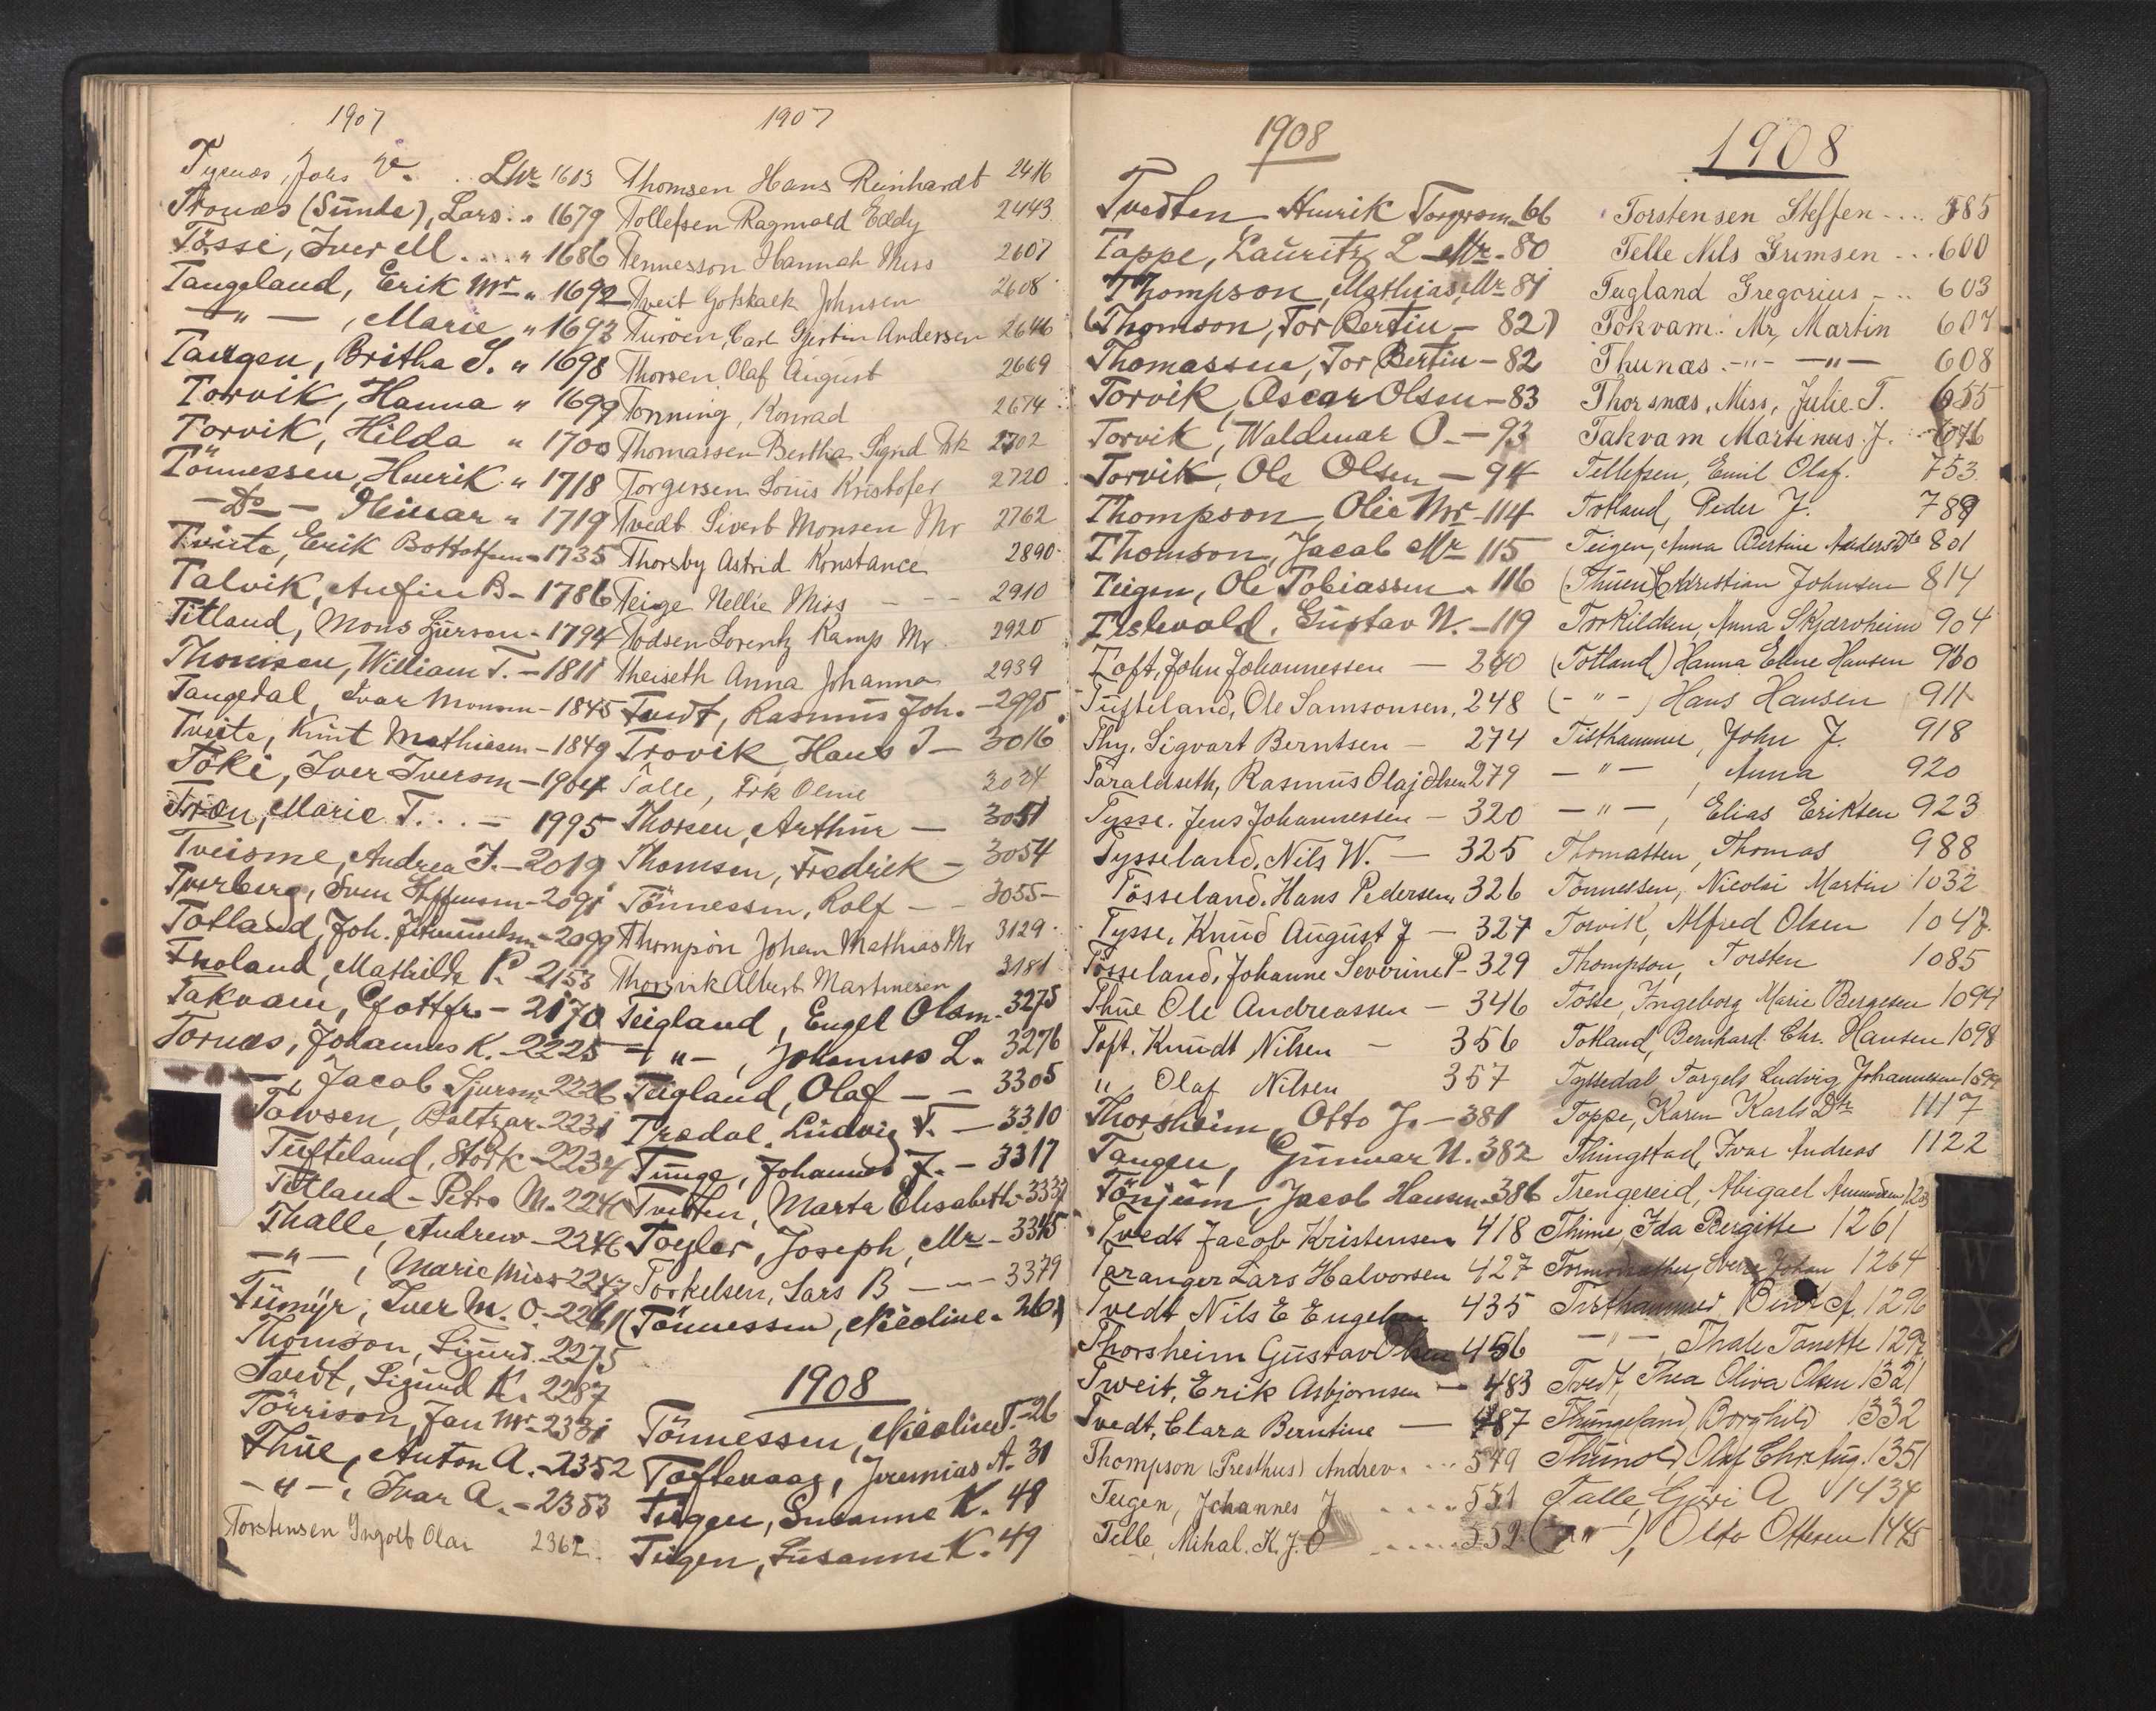 1907
Tyenæs, Johs V. . . LNr 1613
Tronæs (Sunde), Lars . „ 1679
Tösse, Iver M. . . . „ 1686
Tangeland, Erik Mr „ 1692
— „ — , Marie „ 1693
Tangen, Britha S. „ 1698
Torvik, Hanna „ 1699
Torvik, Hilda „ 1700
Tönnessen, Henrik „ 1718
— Do — Heinar „ 1719
Tveite, Erik Bottolfsen - 1735
Talvik, Anfin B - 1786
Titland, Mons Gjerson - 1794
Thomsen, William T. - 1811
Tangedal, Ivar Monsen - 1845
Tveite, Knut Mathiesen - 1849
Töki, Iver Iversen - 1904
Tron, Marie T. . . - 1995
Tveisme, Andrea J. - 2019
Tverberg, Sven Steffensen - 2091
Totland, Joh. - 2099
Mathilde P. - 2153
Takvam, Gottfr. - 2170
Tornæs, Johannes K. - 2225
Jacob Sjursen 2226
Towsen, Baltzar - 2231
Tufteland, Stork - 2234
Titland - Petra M. 224
Thalle, Andrew - 2246
— „ — , Marie Miss 2247
Tümyr, Iver M. O. - 2261
Thomson, Sigurd. 2275
Tvedt, Sigurd K. 2287
Törrison, Jan Mr - 2331
Thue, Anton A. - 2352
— „ — , Ivar A. - 2353
Torstensen Ingolb Olai 2362.
1907
Thomsen Hans Reinhardt 2416
Tollefsen Ragnvald Eddy 2443
Tennesson Hannah Miss 2607
Tveit Gotskalk Johnsen 2608
Turöen, Carl Gjertin Andersen 2646
Thorsen Olaf August 2669
Tonning, Konrad 2674
Thomassen Bertha Signd Frk 2702
Torgersen Louis Kristofer 2720
Tvedt Sivert Monsen Mr 2762
Thorsby Astrid Konstance 2890
Teige Nellie Miss - - - 2910
Todsen Lorentz Kamp Mr 2920
Theiseth Anna Johanna 2939
Tvedt, Rasmus Joh. - 2995
Trovik, Hans J - 3016
Talle, Frk Oline 3024
Thorsen, Arthur — 3051
Thomsen, Fredrik - 3054
Tönnessen, Rolf — 3055 -
Thompson Johan Mathias Mr 3129
Thorsvik Albert Martinesen 3181
Teigland, Engel Olsen. 3275
— „ — , Johannes L. 3276
Teigland, Olaf - - 3305
Tredal, Ludvig T. — 3310
Tunge, Johannes J. - 3317
Tvetten, Marta Elisabeth - 333
Toyler, Joseph, Mr - 3345
Torkelsen, Lars B - - - 3379
(Tönnessen, Nicoline. 26)
1908
Tönnessen, Nicoline T - 26
Toftevaag, Jeremias A. 31
Teigen, Susanne K. 48
Teigen, Susanne K. 49
1908
Tvedten, Henrik Torgersen. 66
Tappe, Lauritz L - Mr - 80
Thompson, Mathias, Mr 81
(Thomson, Tor Bertin - 82)
Thomassen, Tor Bertin - 82
Torvik, Oscar Olsen - 83
Torvik, Waldemar O. - 93
Torvik, Ole Olsen — 94
Thompson, Olie Mr - 114
Thomson, Jacob Mr 115
Teigen, Ole Tobiassen - 116
Tislevold, Gustav N. - 119
Toft, John Johannessen — 240
Tufteland, Ole Samsonsen, 248
Thy, Sigvart Berntsen - 274
Taraldseth, Rasmus Olaj Olsen 279
Tysse. Jens Johannessen - 320
Tysseland, Nils W. — 325
Tösseland, Hans Pedersen, 326
Tysse, Knud August J - 327
Tösseland, Johanne Severine P - 329
Thue Ole Andreassen - 346
Toft. Knudt Nilsen - 356
„ , Olaf Nilsen 357
Thorsheim, Otto J. - 381
Tangen, Gunnar N. 382
Tönjum, Jacob Hansen. 386
Tvedt Jacob Kristensen 418
Taranger Lars Halvorsen 427
Tvedt Nils E Engelsen 435
Thorsheim Gustav Olsen 456
Tweit, Erik Asbjornsen — 483
Tvedt, Clara Berntine — 487
Thompson (Presthus) Andrew. . . . 549
Teigen, Johannes J . . . . 551
Telle, Mihal. K. J. O . . . . . 552
1908
Torstensen Steffen - . . . 585
Telle Nils Grimsen - . . . 600
Tugland Gregorius - . . 603
Tokvam. Mr, Martin 607
Thunæs. - „ - — „ — 608
Thorsnæs, Miss, Julie T. 655
Takvam Martinus J. . . 676
Tellefsen, Emil Olaf. 753
Totland, Peder J. 789
Teigen, Anna Bertine Anders Dtr 801
(Thuen) Christian Johnsen 814
Torkildsen, Anna Skjærvheim 904
(Totland) Hanna Eline Hansen 910
( - „ - ) Hans Hansen 911
Tisthammer, John J. 918
— „ — , Anna 920
— „ — , Elias Eriksen 923
Thomassen, Thomas 988
Tönnessen, Nicolai Martin 1032
Torvik, Alfred Olsen 1047
Thompson, Torsten 1085
Tosse, Ingeborg Marie Bergesen 1094
Totland, Bernhard Chr. Hansen 1098
Tyssedal, Torgels Ludvig Johannesen 1099
Toppe, Karen Karls Dtr 1117
Thingstad, Ivar Andreas 1122
Trengereid, Abigael Amundsen 123
Thime, Ida Birgitte 1261
Sverre Johan 1264
Tisthammer, Bent A. 1296
— „ — , Thale Tonette 1297
Tvedt, Thea Oliva Olsen 1321
Thungeland, Borghild 1332
Thunold, Olaf Chr. Aug. 1351
Talle, Guri A 1434
( - „ - ), Otto Ottesen 1445
W
X